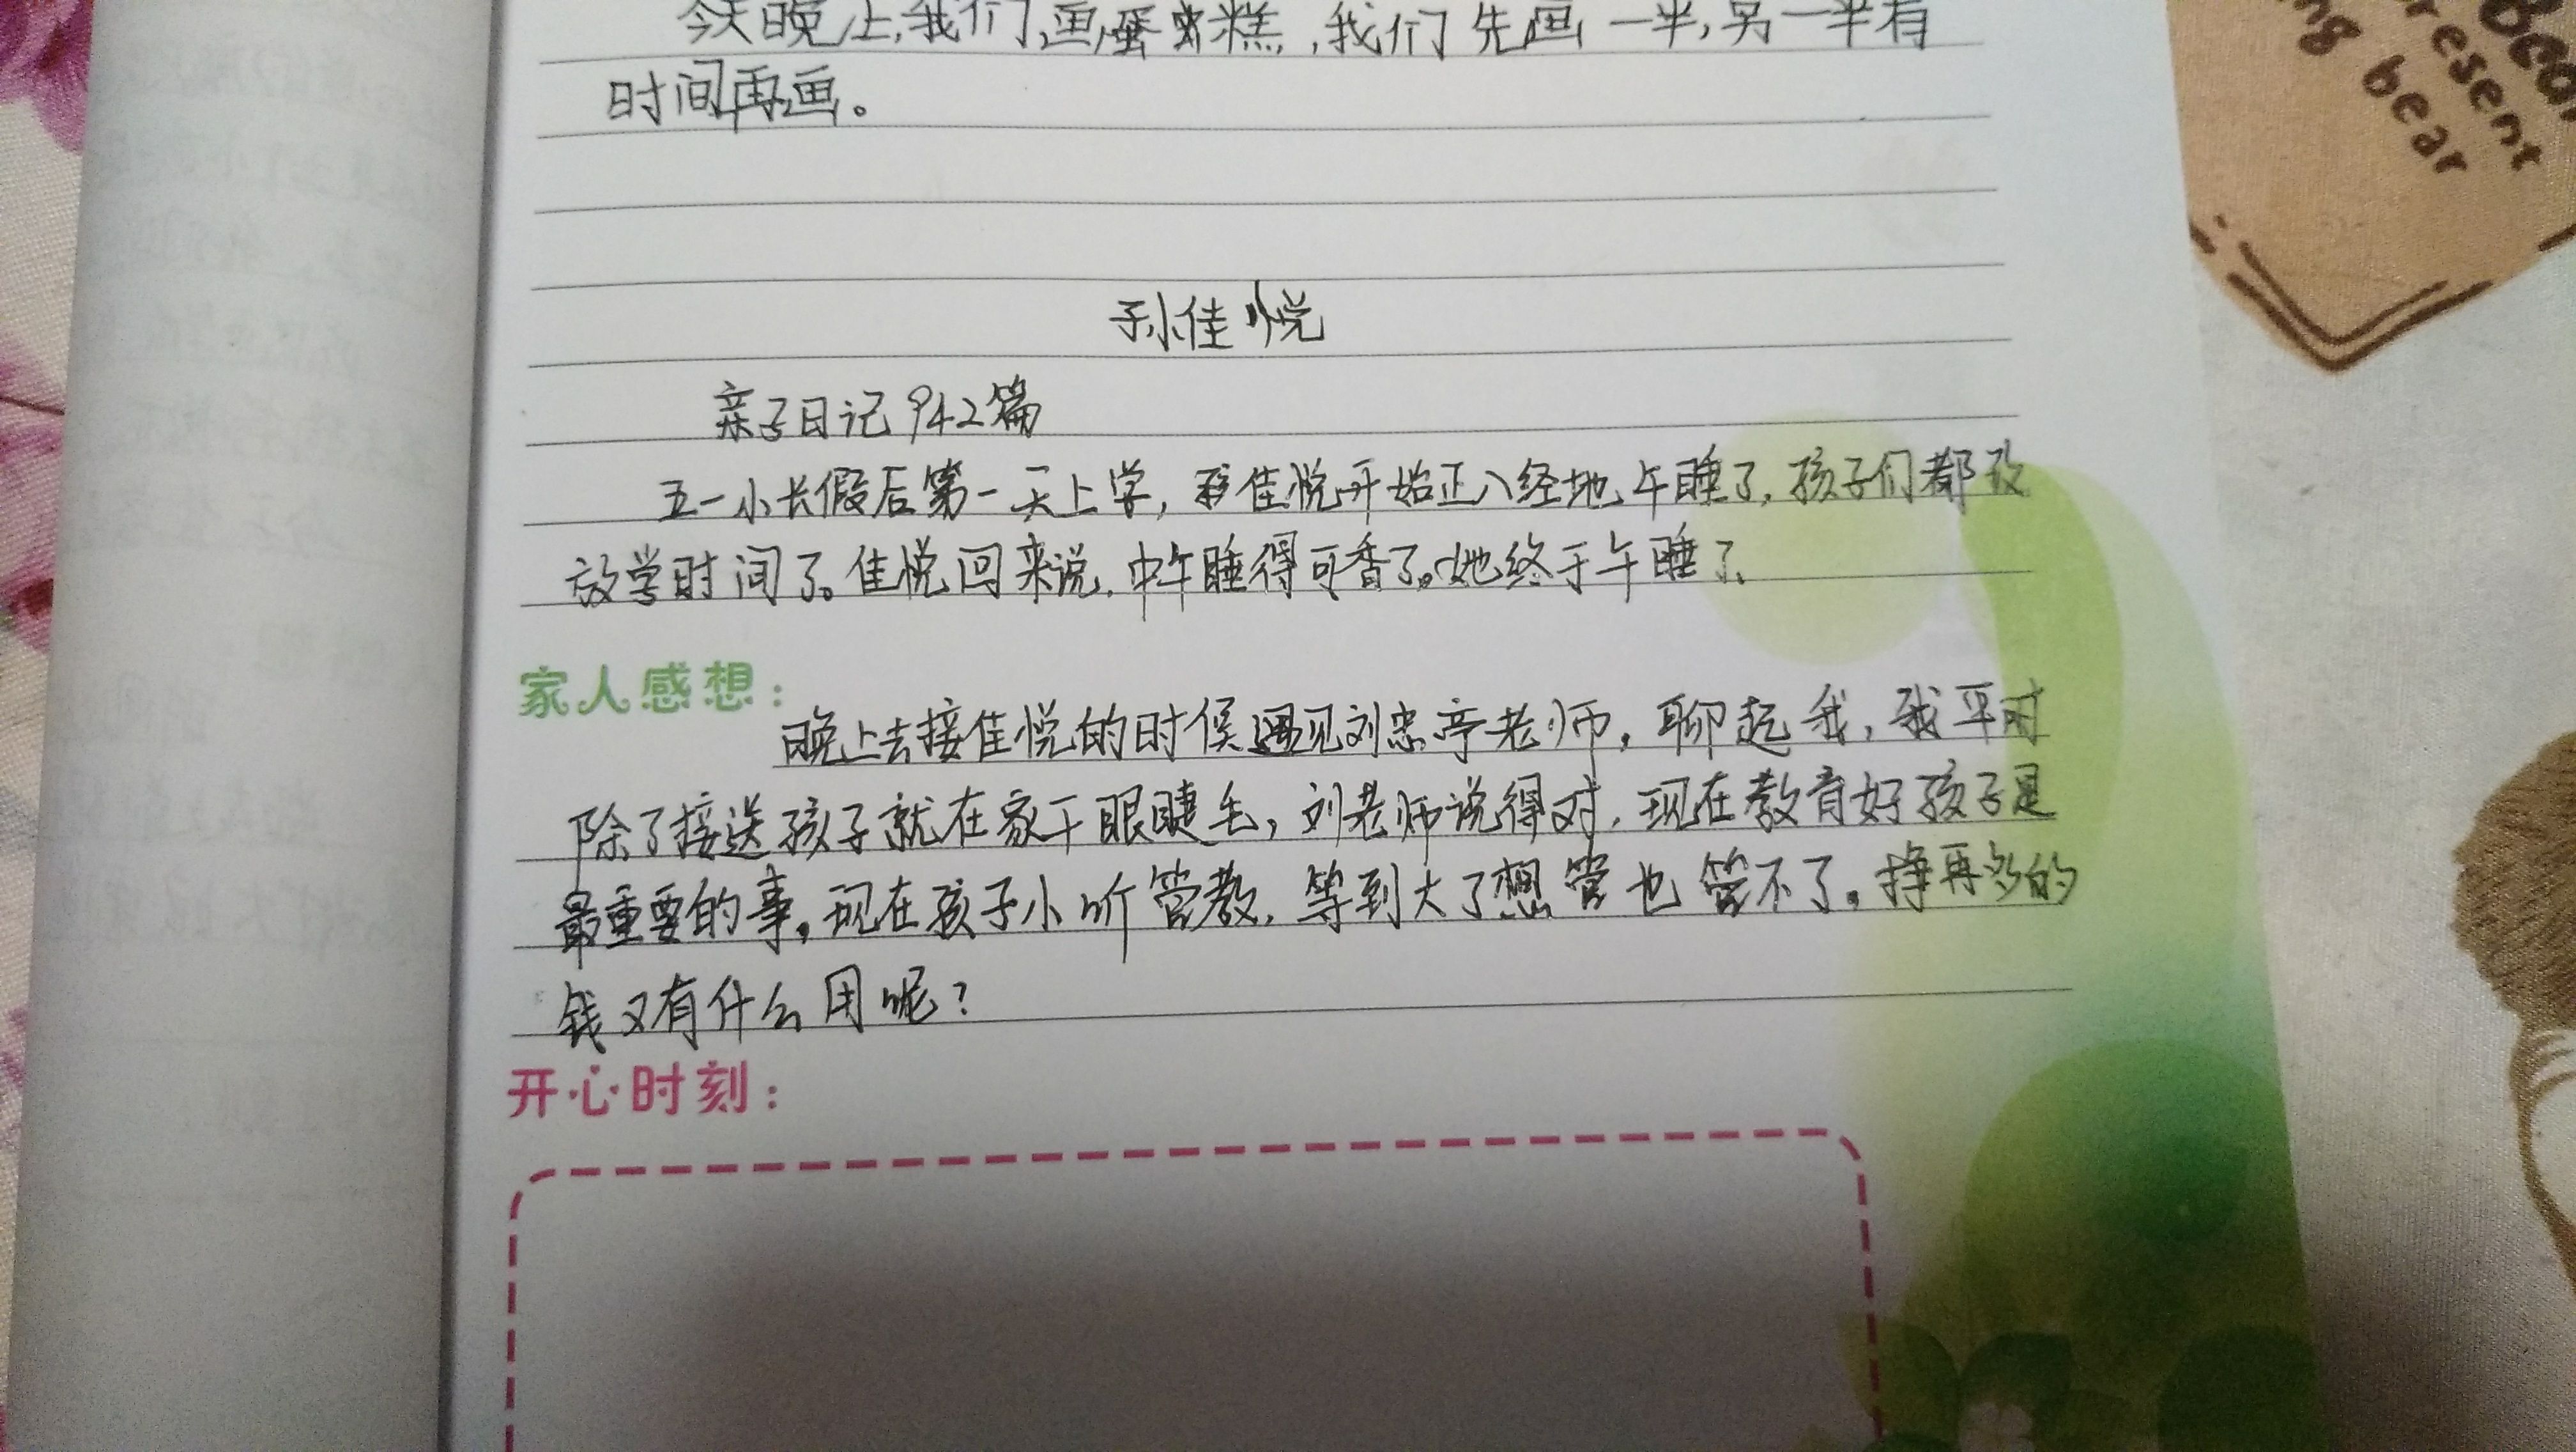 今天晚上,我们画蛋糕,我们先画一半,另一半有
时间再画。
孙佳悦
亲子日记942篇
五一小长假后第一天上学,孙佳悦开始正八经地午睡了,孩子们都改
放学时间了。佳悦回来说,中午睡得可香了。她终于午睡了、
家人感想:
晚上去接佳悦的时候遇见刘忠亭老师,聊起我,我平时
除了接送孩子就在家干眼睫毛,刘老师说得对,现在教育好孩子是
最重要的事。现在孩子小听管教,等到大了想管也管不了。挣再多的
钱又有什么用呢?
开心时刻:
Bear
present
ng bear